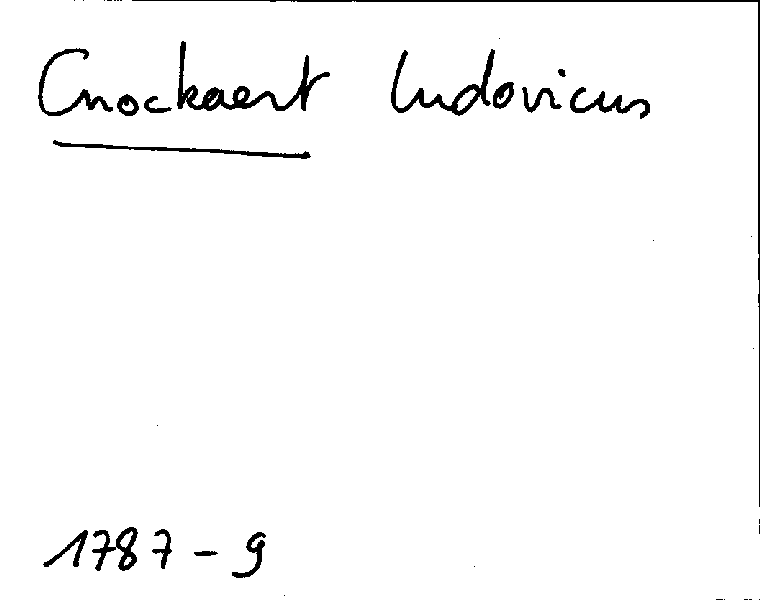 Cnockaert Ludovicus
1787 - 9